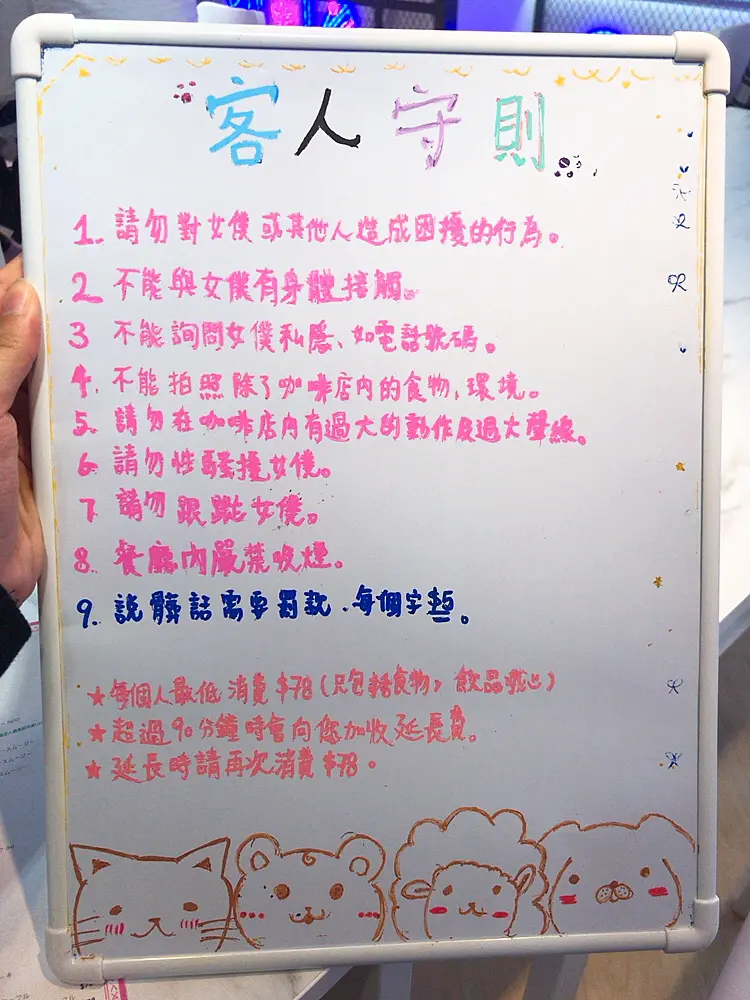 客人守則
1. 請勿對女僕或其他人造成困擾的行為。
2. 不能與女僕有身體接觸。
3 不能詢問女僕私隱、如電話號碼。
4. 不能拍照除了咖啡店內的食物,環境。
5. 請勿在咖啡店內有過大的動作及過大聲線。
6. 請勿性騷擾女僕。
7. 請勿跟蹤女僕。
8. 餐廳內嚴禁吸煙。
9. 說髒話需要罰款、每個字$5。
★每個人最低消費$78(只包括食物, 飲品或心)
★超過90分鐘時會向您加收延長費。
★延長時請再次消費$78。